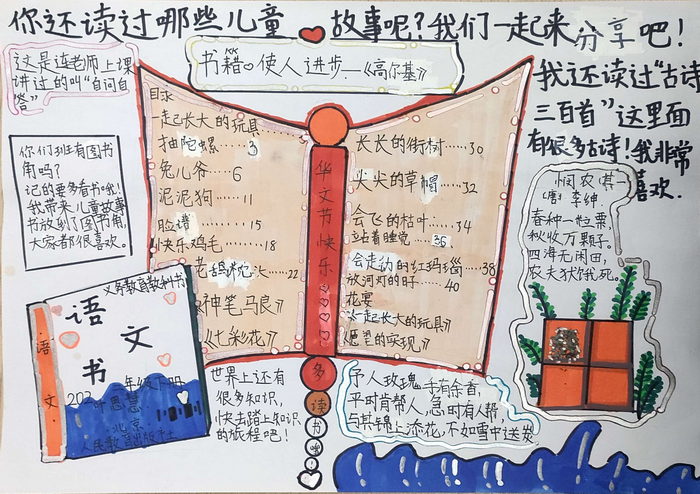 你还读过哪些儿童❤故事呢？我们一起来分享吧！
这是连老师上课
讲过的叫“自问自
答”
书籍。使人进步—《高尔基》
我还读过“古诗
三百首”这里面
有很多古诗！我非常
喜欢.
你们班有图书
角吗？
记的要多看书哦！
我带来儿童故事
书放到了图书角，
大家都很喜欢.
目录
一起长大的玩具
抽陀螺……3
兔儿爷……6
泥泥狗……11
脸谱……15
快乐鸡毛……18
……22
《神笔马良》
《七彩花》
华文节快乐
长长的街树……30
尖尖的草帽……32
会飞的枯叶……34
站着睡觉……36
会走动的红玛瑙……38
放河灯的日子……40
花宴
《一起长大的玩具》
《愿望的实现》
悯农其一
(唐)李绅
春种一粒粟，
秋收万颗子。
四海无闲田，
农夫犹饿死。
义务教育教科书
语文书
语文
叶思慧
北京
人民教育出版社
世界上还有
很多知识，
快去踏上知识
的旅程吧！
多读书哦
予人玫瑰手有余香，
平时肯帮人，急时有人帮，
与其锦上添花，不如雪中送炭